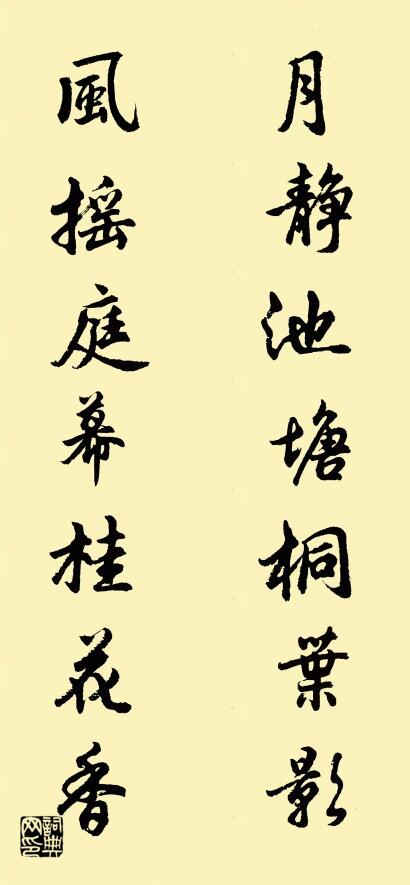 月静池塘桐葉影
風摇庭幕桂花香
詞典網印